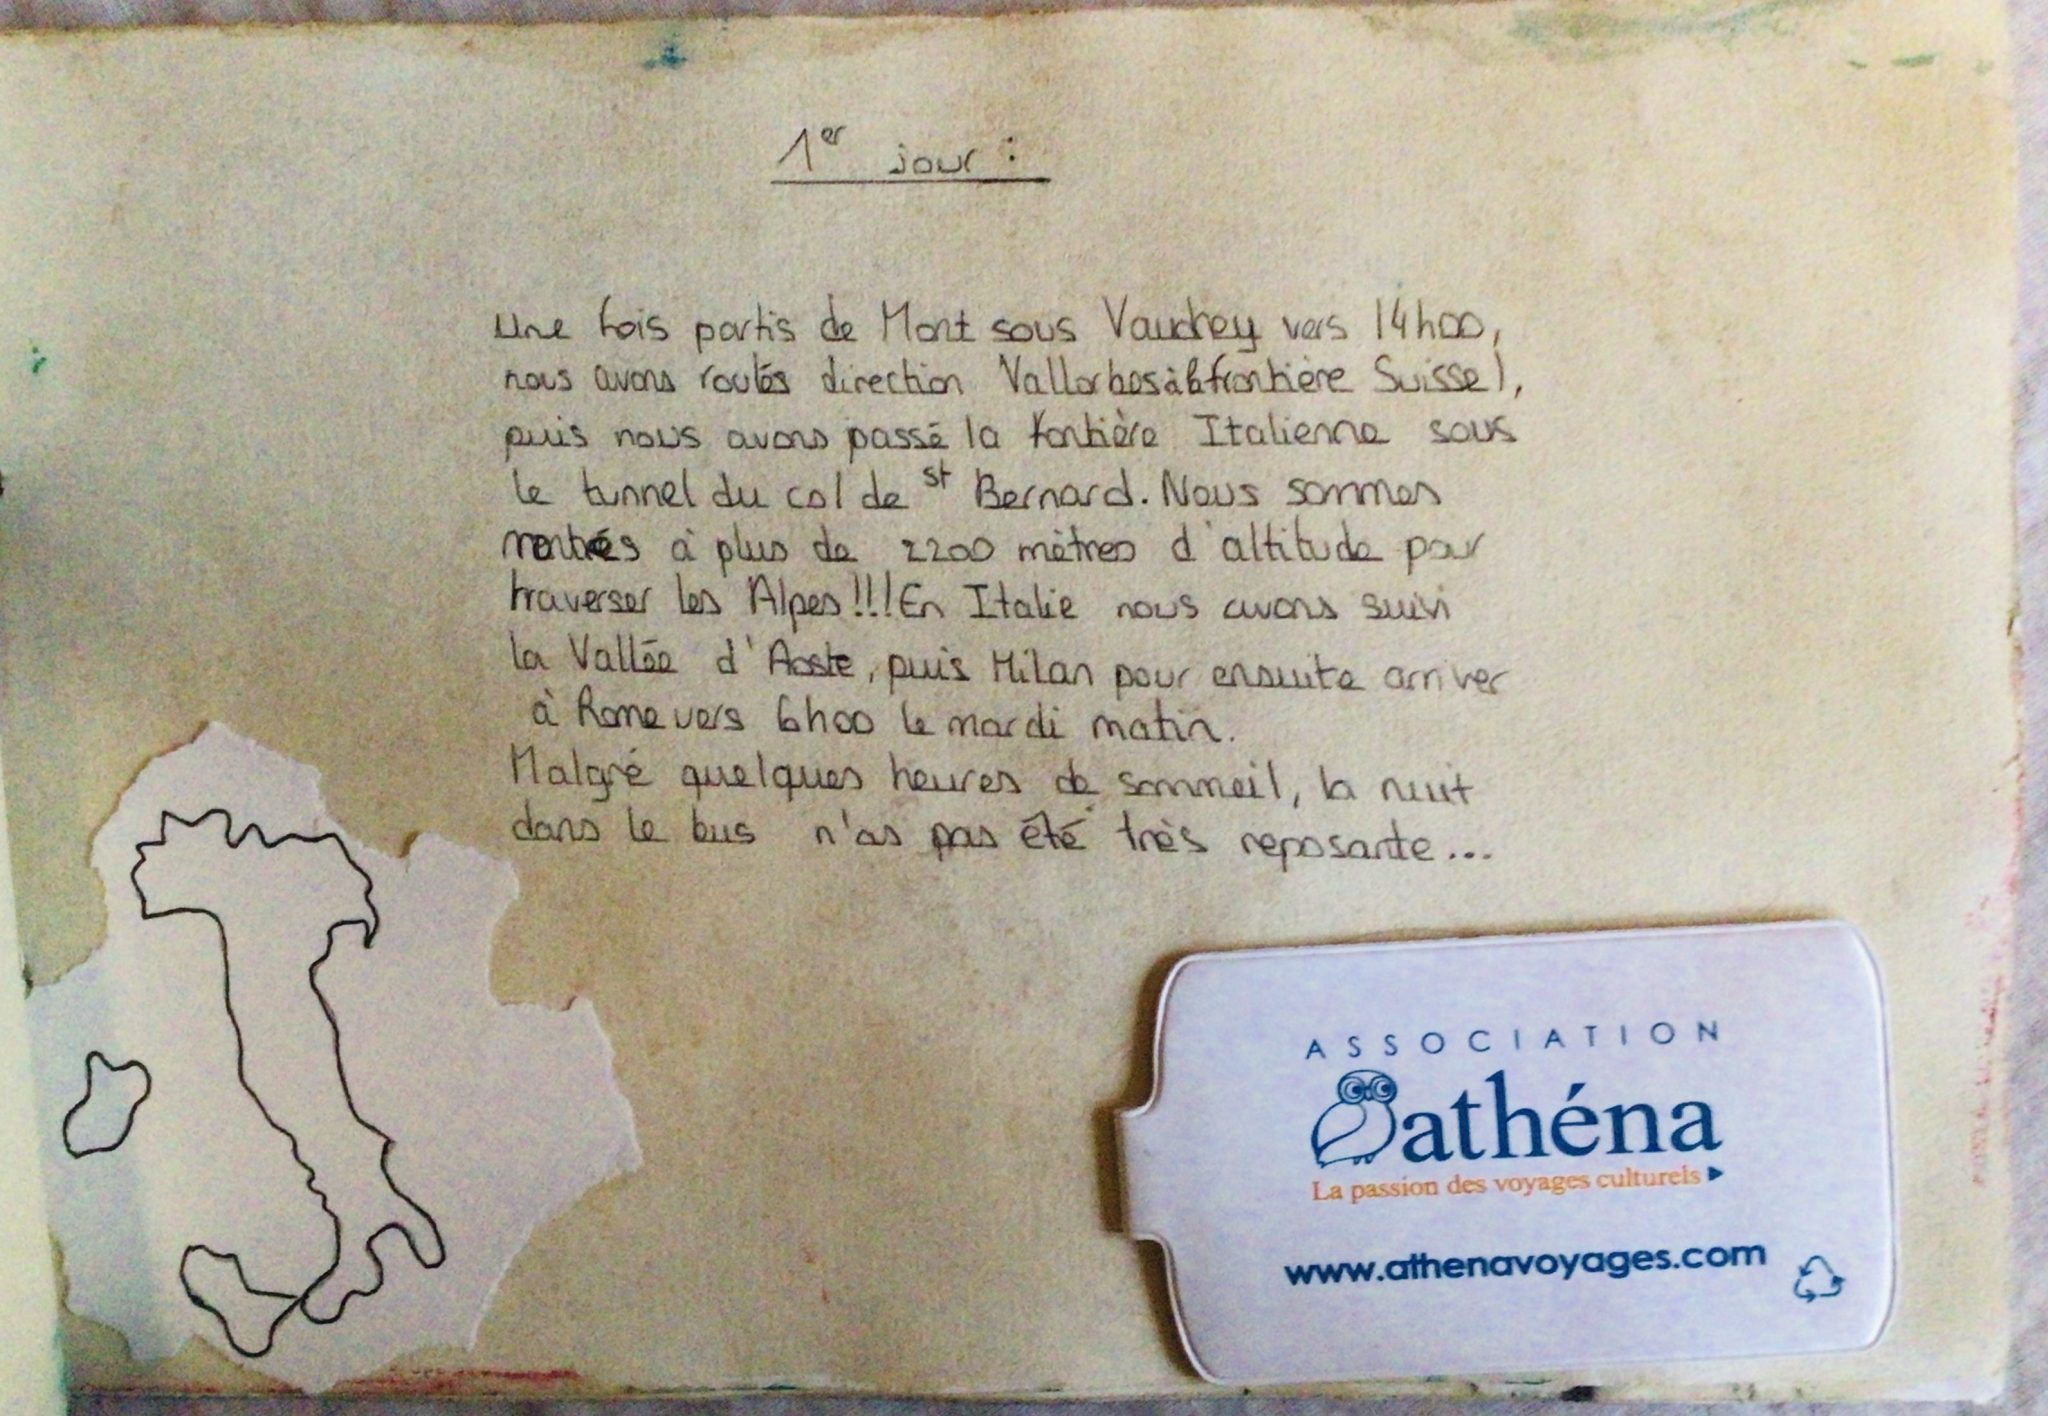 1er jour :
Une fois partis de Mont sous Vaudrey vers 14h00,
nous avons routés direction Vallorbes à la frontière Suisse),
puis nous avons passé la fontière Italienne sous
le tunnel du col de st Bernard. Nous sommes
montés à plus de 2200 mètres d'altitude pour
traverser les Alpes!!! En Italie nous avons suivi
la Vallée d'Aoste, puis Milan pour ensuite arriver
à Rome vers 6h00 le mardi matin.
Malgré quelques heures de sommeil, la nuit
dans le bus n'as pas été très reposante...
ASSOCIATION
athéna
La passion des voyages culturels
www.athenavoyages.com